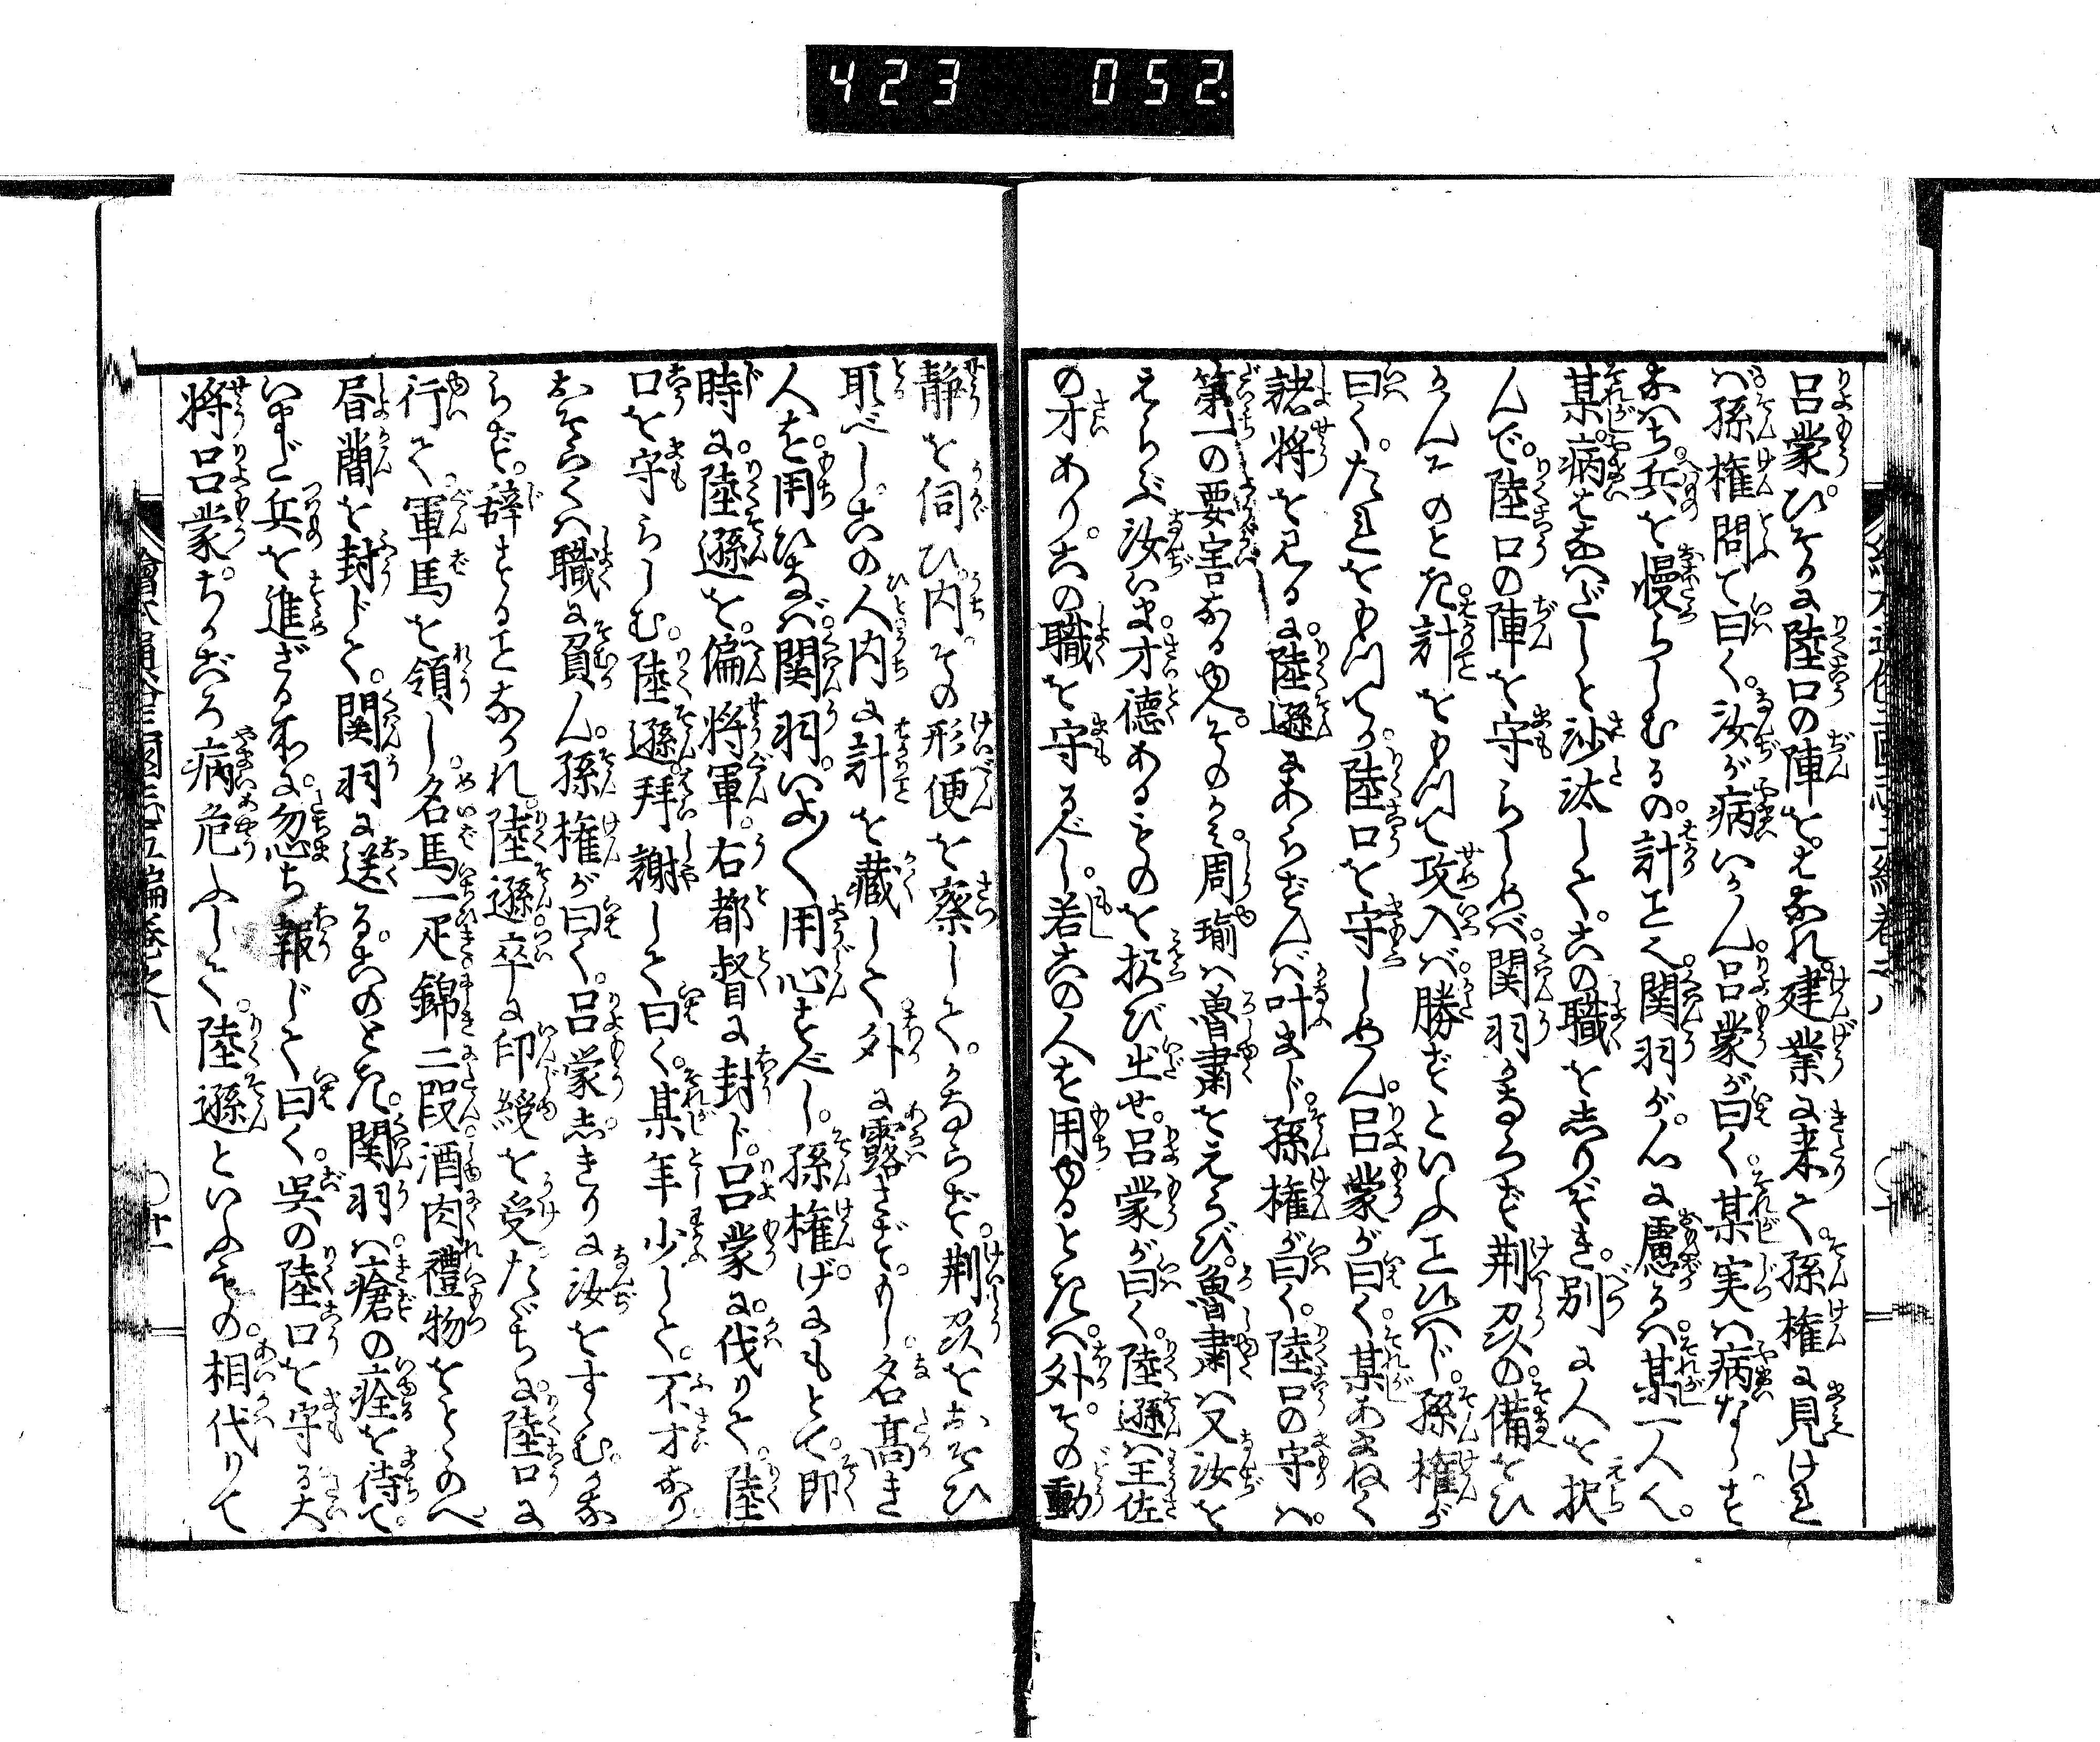 423 052
呂蒙ひそかに陸口の陣をはなれ建業に来て孫権に見けれ
ば孫権問て曰く汝が病いかん呂蒙が曰く某実は病ならず
なはち兵を慢らしむるの計こと也関羽が心に慮るは某一人也
某病はなはだしと沙汰してこの職をしりぞき別に人を択
んで陸口の陣を守らしめば関羽かならず荊州の備をひ
かんそのとき計をもつて攻入ば勝ずといふことなし孫権が
曰くたれをもつてか陸口を守しめん呂蒙が曰く某あまねく
諸将を見るに陸遜にあらずんば叶まじ孫権が曰く陸口の守は
第一の要害なるゆへそのかみ周瑜は魯粛をえらび魯粛は又汝を
えらぶ汝いま才徳あるものを択び出せ呂蒙が曰く陸遜は王佐
の才ありこの職を守るべし若この人を用ゆるときは外その動
静を伺ひ内その形便を察してかならず荊州をおそひ
取べしこの人内に計を蔵して外に露さずもし名高き
人を用ひなば関羽いよ〱用心すべし孫権げにもとて即
時に陸遜を偏将軍右都督に封じ呂蒙に代りて陸
口を守らしむ陸遜拝謝して曰く某年少して不才なり
おそらくは職に負ん孫権が曰く呂蒙しきりに汝をすゝむかな
らず辞することなかれ陸遜卒に印綬を受たゞちに陸口に
行て軍馬を領し名馬一疋錦二段酒肉禮物をとゝのへ
書簡を封じて関羽に送るこのとき関羽は瘡の痊を待て
いまだ兵を進ざる処に忽ち報じて曰く呉の陸口を守る大
将呂蒙ちかごろ病危ふして陸遜といふもの相代りて